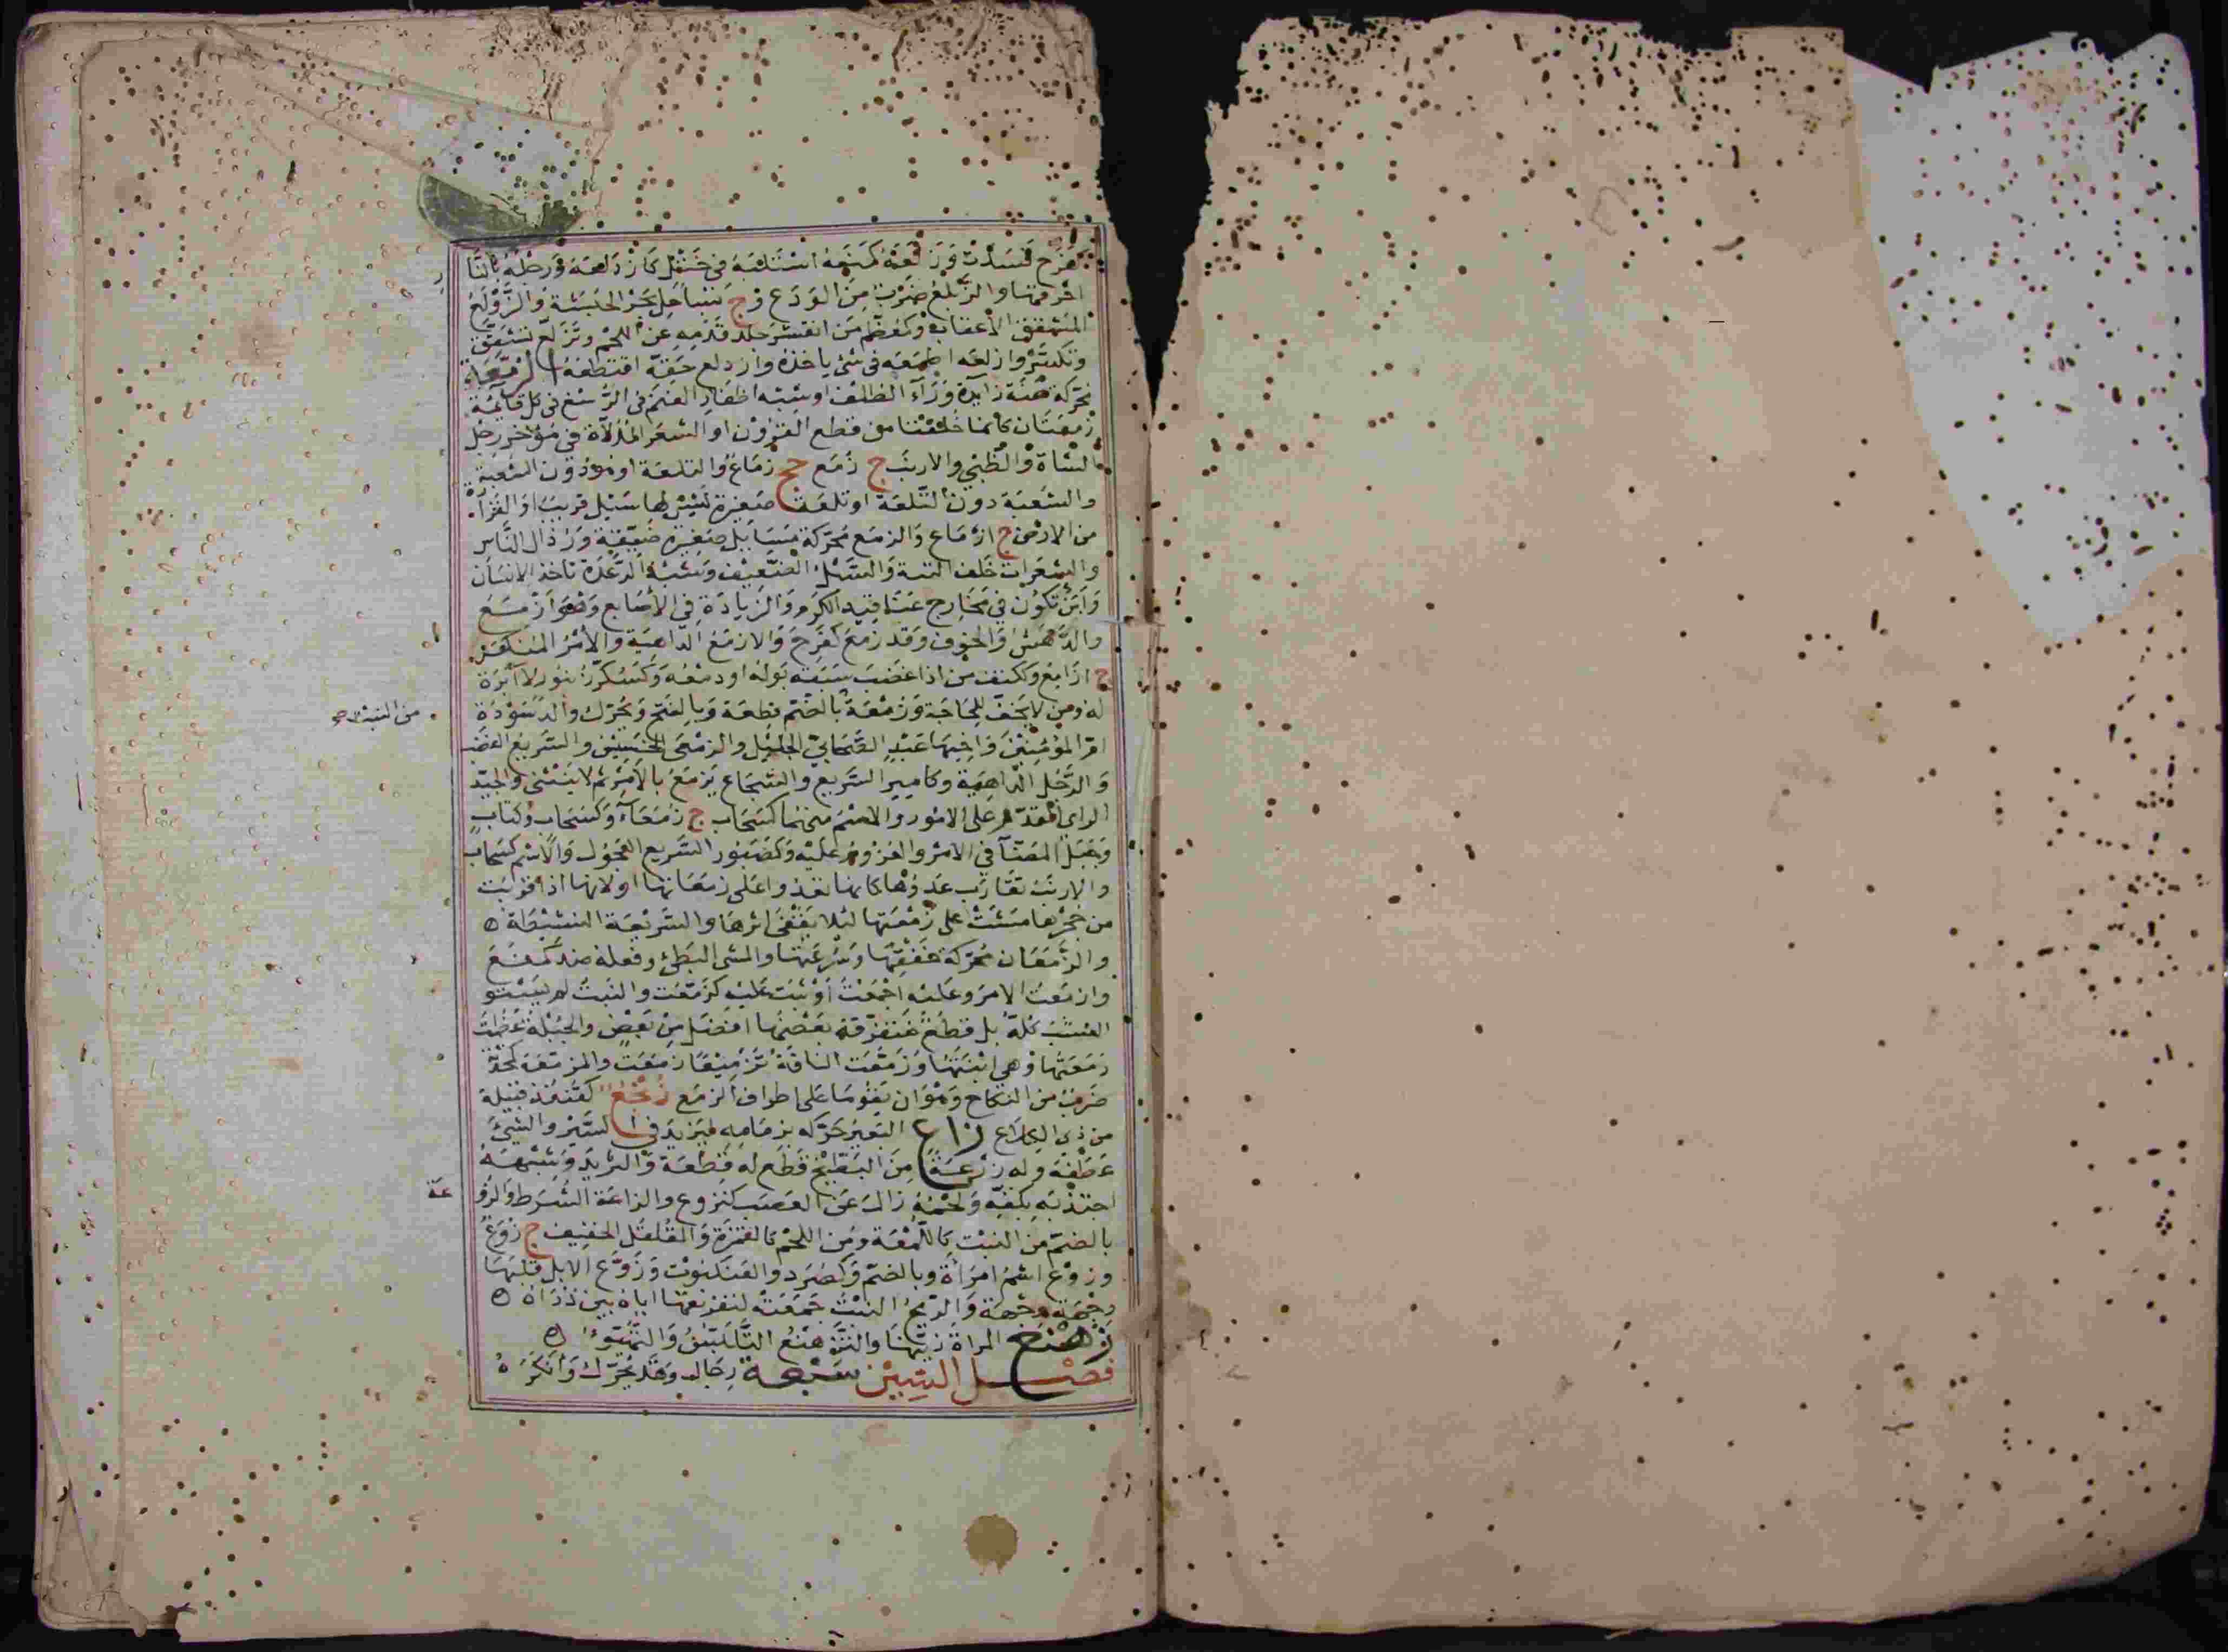 كفرح فسدت وزلعه كمنعه استلبه في ختل كازدلعه ورجله بالنا
احرقها والزيلع ضرب من الودع و ج بساحل بحر الحبشة والزولع
المتشقق الاعقاب وكمعظم من انقشر جلد قدمه عن اللحم وتزلع تشقق
وتكسر وازلعه اطمعه في شي ياخذه وازدلع حقه اقتطعه الزمعة
محركة هنة زايدة وراء الظلف او شبه اظفار الغنم في الرسغ في كل قايمة
زمعتان كانما خلقتا من قطع القرون او الشعر المدلاة في مؤخر رجل
الشاة والظبي والارنب ج زمع جج زماع والتلعة او هو دون الشعبة
والشعبة دون التلعة او تلعة صغيرة ليس لها سيل قريب او القرارة
من الارض ج ازماع والزمع محركة مسايل صغيرة ضيقة ورذال الناس
والشعرات خلف الثنة والسيل الضعيف وشبه الرعدة تاخذ الانسان
وابن تكون في مخارج عناقيد الكرم والزيادة في الاصابع وهو ازمع
والدهش والخوف وقد زمع كفرح والازمع الداهية والامر المنكر
ج ازامع وككتف من اذا غضب سبقه بوله او دمعه وكسكر زنبور لا ابرة
له ومن لا يخف للحاجة وزمعة بالضم قطعة وبالفتح ويحرك والد سودة
من النبت صح
ام المؤمنين واخيها عبد الصحابي الجليل والزمعي الخسيس والسريع الغضب
والرجل الداهية وكامير السريع والشجاع يزمع بالامر ثم لا ينثني والجيد
الراي المقدم على الامور والاسم منهما كسحاب ج زمعاء وكسحاب وكتاب
وجبل المضآ في الامر والعزوم عليه وكصبور السريع العجول والاسم كسحاب
والارنب تقارب عدوها كانها تعدو على زمعاتها او لانها اذا قربت
من جحرها مشت على زمعتها لئلا يقتفى اثرها والسريعة النشيطة
والزمعان محركة خفتها وسرعتها والمشي البطئ وفعله ضد كمنع
وازمعت الامر وعليه اجمعت او ثبت عليه كزمعت والنبت لم يستو
العشب كله بل قطع متفرقة بعضها افضل من بعض والحبلة عظمت
زمعتها وهي ابنتها وزمعت الناقة تزميعا زمعت والمزمعة كمحدثة
ضرب من النكاح وهو ان يقوما على اطراف الزمع زنجع كقنفذ قبيلة
من ذي الكلاع زاع البعير حركه بزمامه ليزيد في السير والشئ
عطفه وله زوعة من البطيخ قطع له قطعة والثريد وشبهه
اجتذبه بكفه ولحمه زال عن العصب كتزوع والزاعة الشرط والزو
عة
بالضم من النبت كاللمعة ومن اللحم كالقمزة والقلقل الخفيف ج زوع
وزوع اسم امراة وبالضم وكصرد والعنكبوت وزوع الابل قلبها
وجهة وجهة والريح النبت جمعته لتفريقها اياه بين ذراه
زهنع المراة زينها والتزهنع التلبس والتهيؤ
فصل السين سبعة رجال وقد يحرك وانكره